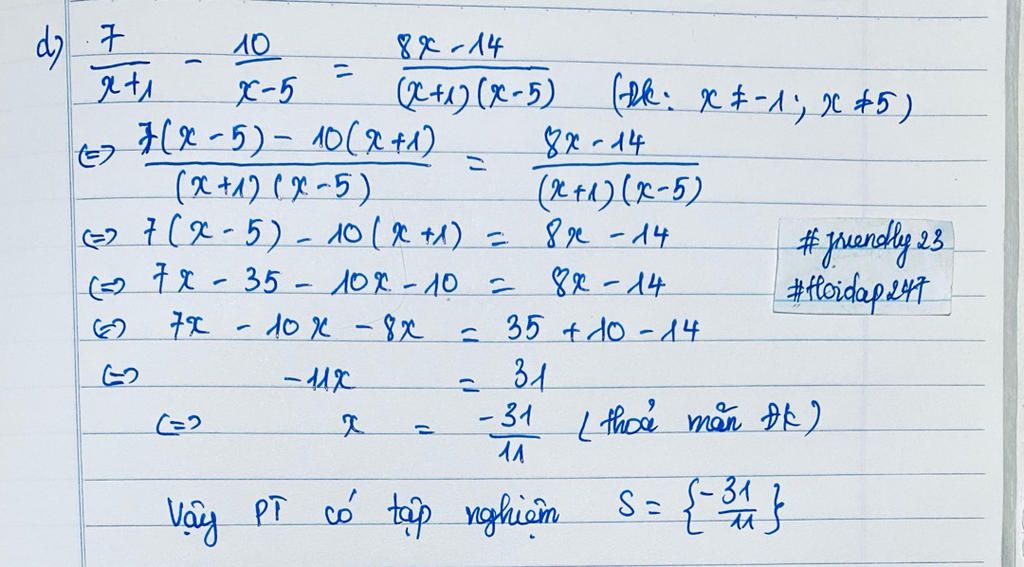 d) 7/(x+1) - 10/(x-5) = (8x-14)/((x+1)(x-5)) (Đk: x ≠ -1; x ≠ 5)
<=> (7(x-5) - 10(x+1))/((x+1)(x-5)) = (8x-14)/((x+1)(x-5))
<=> 7(x-5) - 10(x+1) = 8x - 14
<=> 7x - 35 - 10x - 10 = 8x - 14
<=> 7x - 10x - 8x = 35 + 10 - 14
<=> -11x = 31
<=> x = -31/11 (thoả mãn ĐK)
Vậy PT có tập nghiệm S = {-31/11}
#friendly23
#Hoidap247